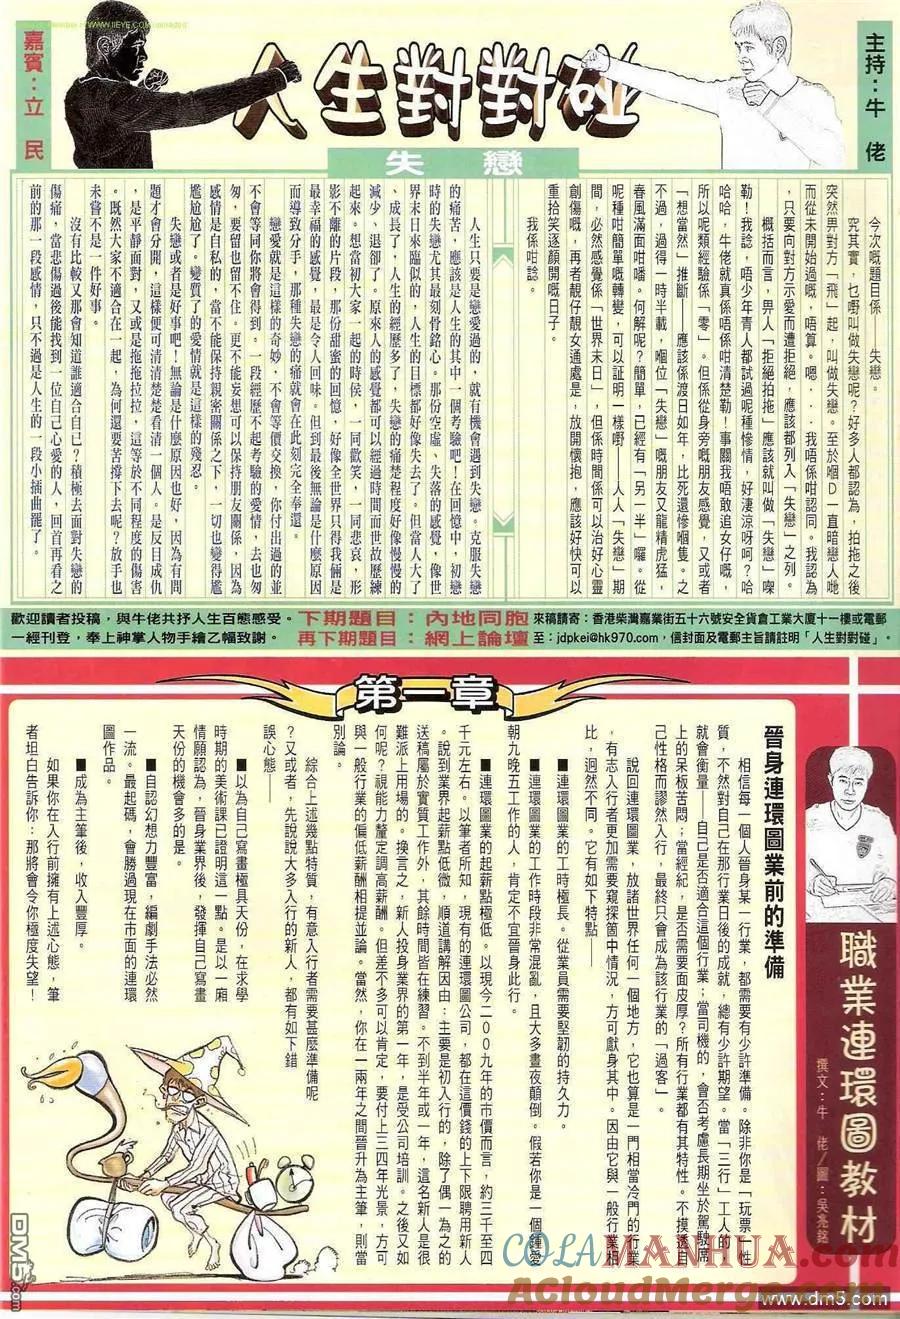 主持：牛佬
人生對對碰
嘉賓：立民
失戀
今次嘅題目係——失戀。
究其實，乜嘢叫做失戀呢？好多人都認為，拍拖之後
突然畀對方「飛」起，叫做失戀。至於嗰D一直暗戀人哋
，只要向對方示愛而遭拒絕，應該都列入「失戀」之列。
而從未開始過嘅，唔算。嗯．．我唔係咁認同。我認為
概括而言，畀人「拒絕拍拖」應該就叫做「失戀」㗎
勒！我諗，唔少年青人都試過呢種慘情，好淒涼呀呵？哈
哈哈，牛佬就真係唔係咁清楚勒！事關我唔敢追女仔嘅，
所以呢類經驗係「零」。但係從身旁嘅朋友感覺，又或者
「想當然」推斷——應該係渡日如年，比死還慘嗰隻。之
不過，過得一時半載，嗰位「失戀」嘅朋友又龍精虎猛，
春風滿面咁喎。何解呢？簡單，已經有「另一半」囉。從
呢種咁簡單嘅轉變，可以証明一樣嘢——人人「失戀」期
間，必然感覺係「世界末日」，但係時間係可以治好心靈
創傷嘅，再者靚仔靚女通處是，放開懷抱，應該好快可以
重拾笑逐顏開嘅日子。
我係咁諗。
人生只要是戀愛過的，就有機會遇到失戀。克服失戀
的痛苦，應該是人生的其中一個考驗吧！在回憶中，初戀
時的失戀尤其最刻骨銘心。那份空虛、失落的感覺，像世
界末日來臨似的，人生的目標都好像失去了。但當人大了
、成長了，人生的經歷多了，失戀的痛楚程度好像慢慢的
減少、退卻了。原來人的感覺都可以經過時間而世故歷練
起來。想當初大家一起的時侯，一同歡笑，一同悲哀，形
影不離的片段，那份甜蜜的回憶，好像全世界只得我倆是
最幸福的感覺，最是令人回味。但到最後無論是什麼原因
而導致分手，那種失戀的痛就會在此刻完全奉還。
戀愛就是這樣的奇妙，不會等價交換，你付出過的並
不會等同你將會得到。一段經歷不起考驗的愛情，去也匆
匆，要留也留不住。更不能妄想可以保持朋友關係，因為
感情是自私的，當不能保持親密關係之下，一切也變得尷
尷尬尬了。變質了的愛情就是這樣的殘忍。
失戀或者是好事吧！無論是什麼原因也好，因為有問
題才會分開，這樣便可清清楚楚看清一個人。是反目成仇
，是平靜面對，又或是拖拖拉拉，這等於不同程度的傷害
。既然大家不適合在一起，為何還要苦撐下去呢？放手也
未嘗不是一件好事。
沒有比較又那會知道誰適合自己？積極去面對失戀的
傷痛，當悲傷過後能找到一位自己心愛的人，回首再看之
前的那一段感情，只不過是人生的一段小插曲罷了。
歡迎讀者投稿，與牛佬共抒人生百態感受。
一經刊登，奉上神掌人物手繪乙幅致謝。
下期題目：內地同胞
再下期題目：網上論壇
來稿請寄：香港柴灣嘉業街五十六號安全貨倉工業大廈十一樓或電郵
至：jdpkei@hk970.com，信封面及電郵主旨請註明「人生對對碰」。
第一章
職業連環圖教材
撰文：牛佬／圖：吳兆銘
晉身連環圖業前的準備
相信每一個人晉身某一行業，都需要有少許準備。除非你是「玩票一性
質，不然對自己在那行業日後的成就，總有少許期望。當「三行」工人的，
就會衡量——自己是否適合這個行業；當司機的，會否考慮長期坐於駕駛席
上的呆板苦悶；當經紀，是否需要面皮厚？所有行業都有其特性。不摸透自
己性格而謬然入行，最終只會成為該行業的「過客」。
說回連環圖業，放諸世界任何一個地方，它也算是一門相當冷門的行業
，有志入行者更加需要窺探箇中情況，方可獻身其中。因由它與一般行業相
比，迥然不同。它有如下特點——
■連環圖業的工時極長。從業員需要堅韌的持久力。
■連環圖業的工作時段非常混亂，且大多晝夜顛倒。假若你是一個鍾愛
朝九晚五工作的人，肯定不宜晉身此行。
■連環圖業的起薪點極低。以現今二００九年的市價而言，約三千至四
千元左右。以筆者所知，現有的連環圖公司，都在這價錢的上下限聘用新人
。說到業界起薪點低微，順道講解因由：主要是初入行的，除了偶一為之的
送稿屬於實質工作外，其餘時間皆在練習。不到半年或一年，這名新人是很
難派上用場的。換言之，新人投身業界的第一年，是受公司培訓。之後又如
何呢？視能力釐定調高薪酬。但差不多可以肯定，要付上三四年光景，方可
與一般行業的偏低薪酬相提並論。當然，你在一兩年之間晉升為主筆，則當
別論。
綜合上述幾點特質，有意入行者需要甚麼準備呢
？又或者，先說說大多入行的新人，都有如下錯
誤心態——
■以為自己寫畫極具天份，在求學
時期的美術課已證明這一點。是以一廂
情願認為，晉身業界後，發揮自己寫畫
天份的機會多的是。
■自認幻想力豐富，編劇手法必然
一流。最起碼，會勝過現在市面的連環
圖作品。
■成為主筆後，收入豐厚。
如果你在入行前擁有上述心態，筆
者坦白告訴你：那將會令你極度失望！
COLAMANHUA.COM
ACloudMerge.com
www.dm5.com
DM5